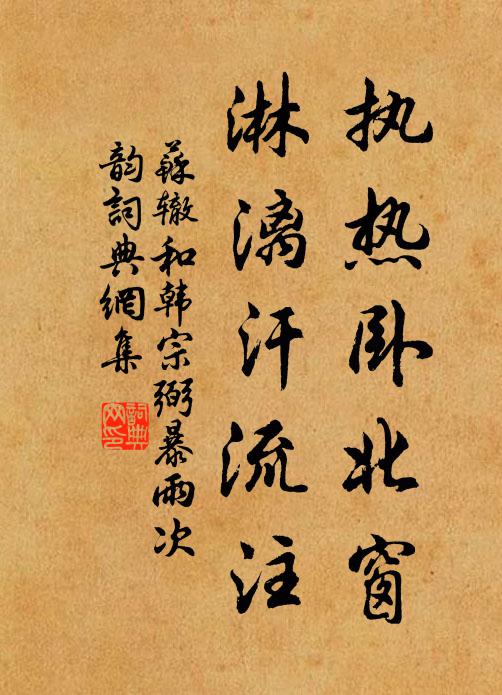 执热卧北窗
淋漓汗流注
蘇辙和韩宗弼暴雨次
韵詞典網集
詞典
网印